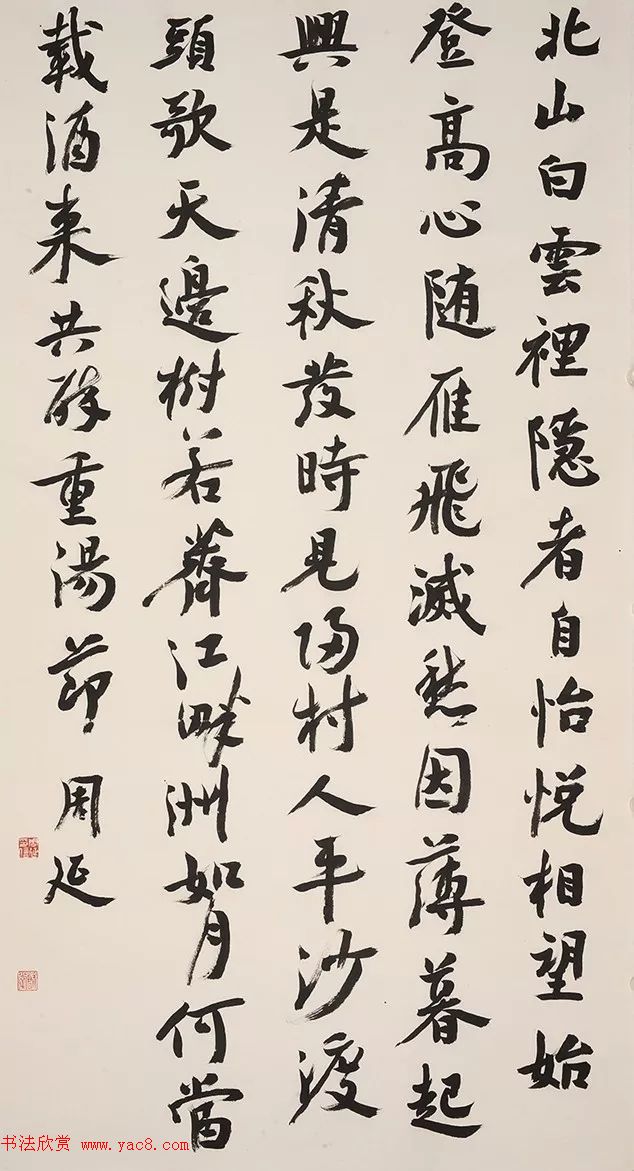 北山白雲裡隱者自怡悅相望始
登高心随雁飛滅愁因薄暮起
興是清秋發時見歸村人平沙渡
頭歌天邊樹若薺江畔洲如月何當
載酒來共醉重陽節
周延
书法欣赏 www.yac8.com